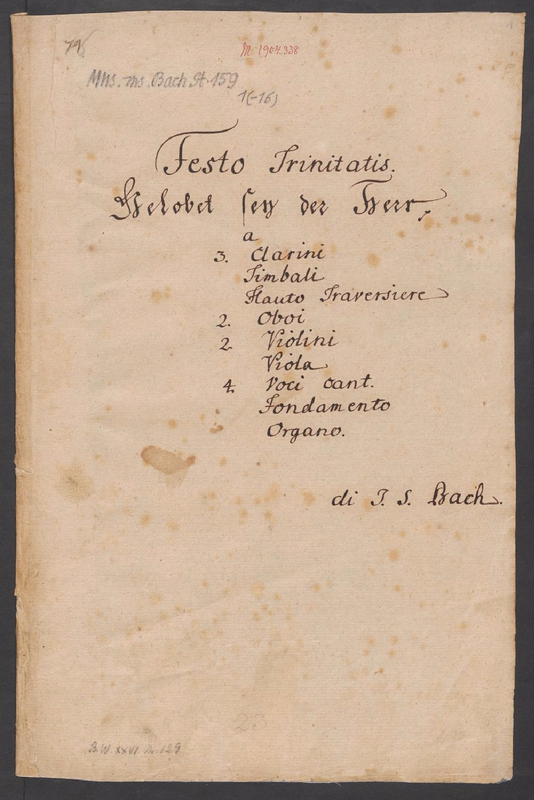 M. 1904.338
Mus. ms. Bach St. 159
1(-16)
Festo Trinitatis.
Gelobet sey der Herr,
a
3. Clarini
Timbali
Flauto Traversiere
2. Oboi
2. Violini
Viola
4. Voci cant.
Fondamento
Organo.
di J. S. Bach.
23
B.W. XXVI No. 129